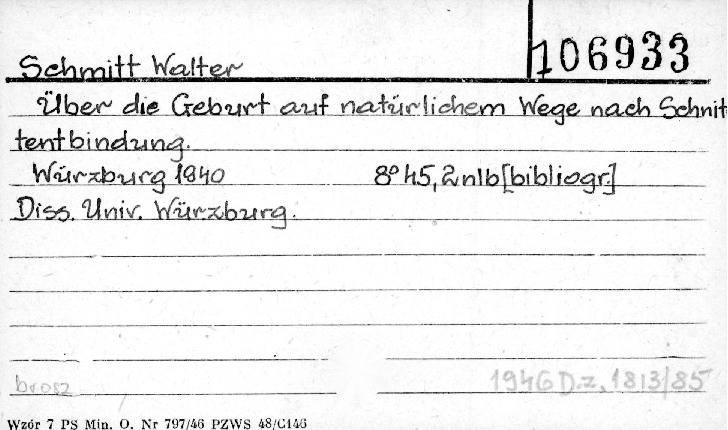 Schmitt Walter
106933
Über die Geburt auf natürlichem Wege nach Schnit
tentbindung.
Würzburg 1940 8° 45, 2 nlb [bibliogr.]
Diss. Univ. Würzburg.
brosz
1946 D.z. 1813/85
Wzór 7 PS Min. O. Nr 797/46 PZWS 48/C146